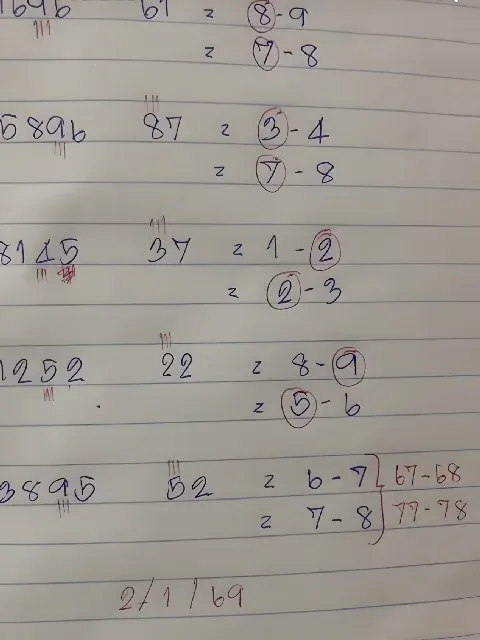 1696 61 = 8-9
= 7-8
5896 87 = 3-4
= 7-8
8145 37 = 1-2
= 2-3
1252 22 = 8-9
= 5-6
3895 52 = 6-7 67-68
= 7-8 77-78
2/1/69